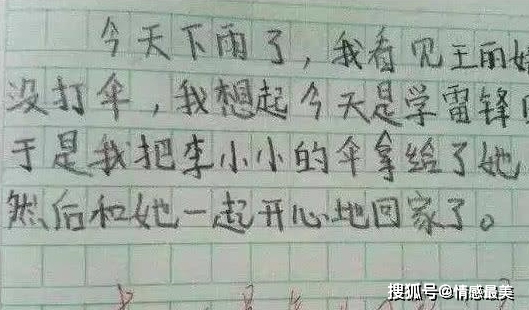 今天下雨了，我看见王丽
没打伞，我想起今天是学雷锋
于是我把李小小的伞拿给了她
然后和她一起开心地回家了。
搜狐号@情感最美